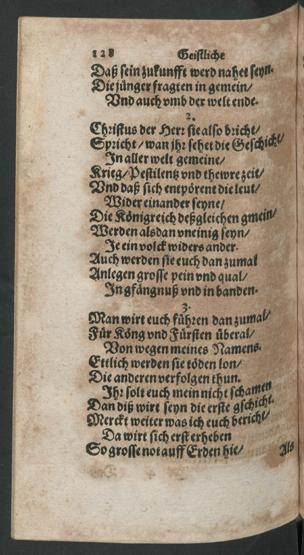 128 Geistliche
Daß sein zukunfft werd nahet seyn.
Die jünger fragten in gemein/
Vnd auch vmb der welt ende.
2.
Christus der Herr sie also bricht/
Spricht/ wan jhr sehet die Geschicht/
In aller welt gemeine/
Krieg/ Pestilentz vnd thewre zeit/
Vnd daß sich entpörent die leut/
Wider einander seyne/
Die Königreich deßgleichen gmein/
Werden alsdan vneinig seyn/
Je ein volck widers ander.
Auch werden sie euch dan zumal
Anlegen grosse pein vnd qual/
In gfängnuß vnd in banden.
3.
Man wirt euch führen dan zumal/
Für Köng vnd Fürsten überal/
Von wegen meines Namens.
Ettlich werden sie töden lon/
Die anderen verfolgen thun.
Ihr solt euch mein nicht schamen
Dan diß wirt seyn die erste gschicht.
Merckt weiter was ich euch bericht/
Da wirt sich erst erheben
So grosse not auff Erden hie/
Als